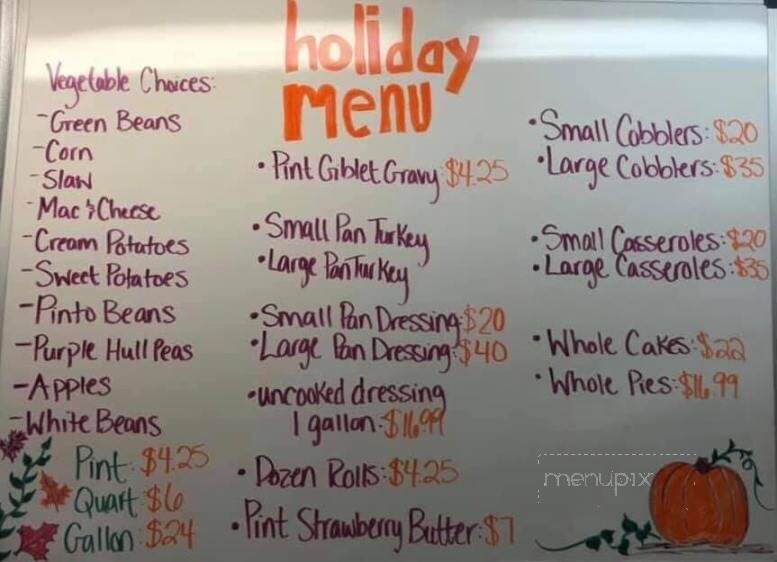 holiday
menu
Vegetable Choices:
-Green Beans
-Corn
-Slaw
-Mac & Cheese
-Cream Potatoes
-Sweet Potatoes
-Pinto Beans
-Purple Hull Peas
-Apples
-White Beans
Pint: $4.25
Quart $6
Gallon: $24
• Pint Giblet Gravy: $4.25
• Small Pan Turkey
• Large Pan Turkey
• Small Pan Dressing: $20
• Large Pan Dressing: $40
• uncooked dressing
1 gallon: $16.99
• Dozen Rolls: $4.25
• Pint Strawberry Butter: $7
• Small Cobblers: $20
• Large Cobblers: $35
• Small Casseroles: $20
• Large Casseroles: $35
• Whole Cakes: $22
• Whole Pies: $16.99
menupix